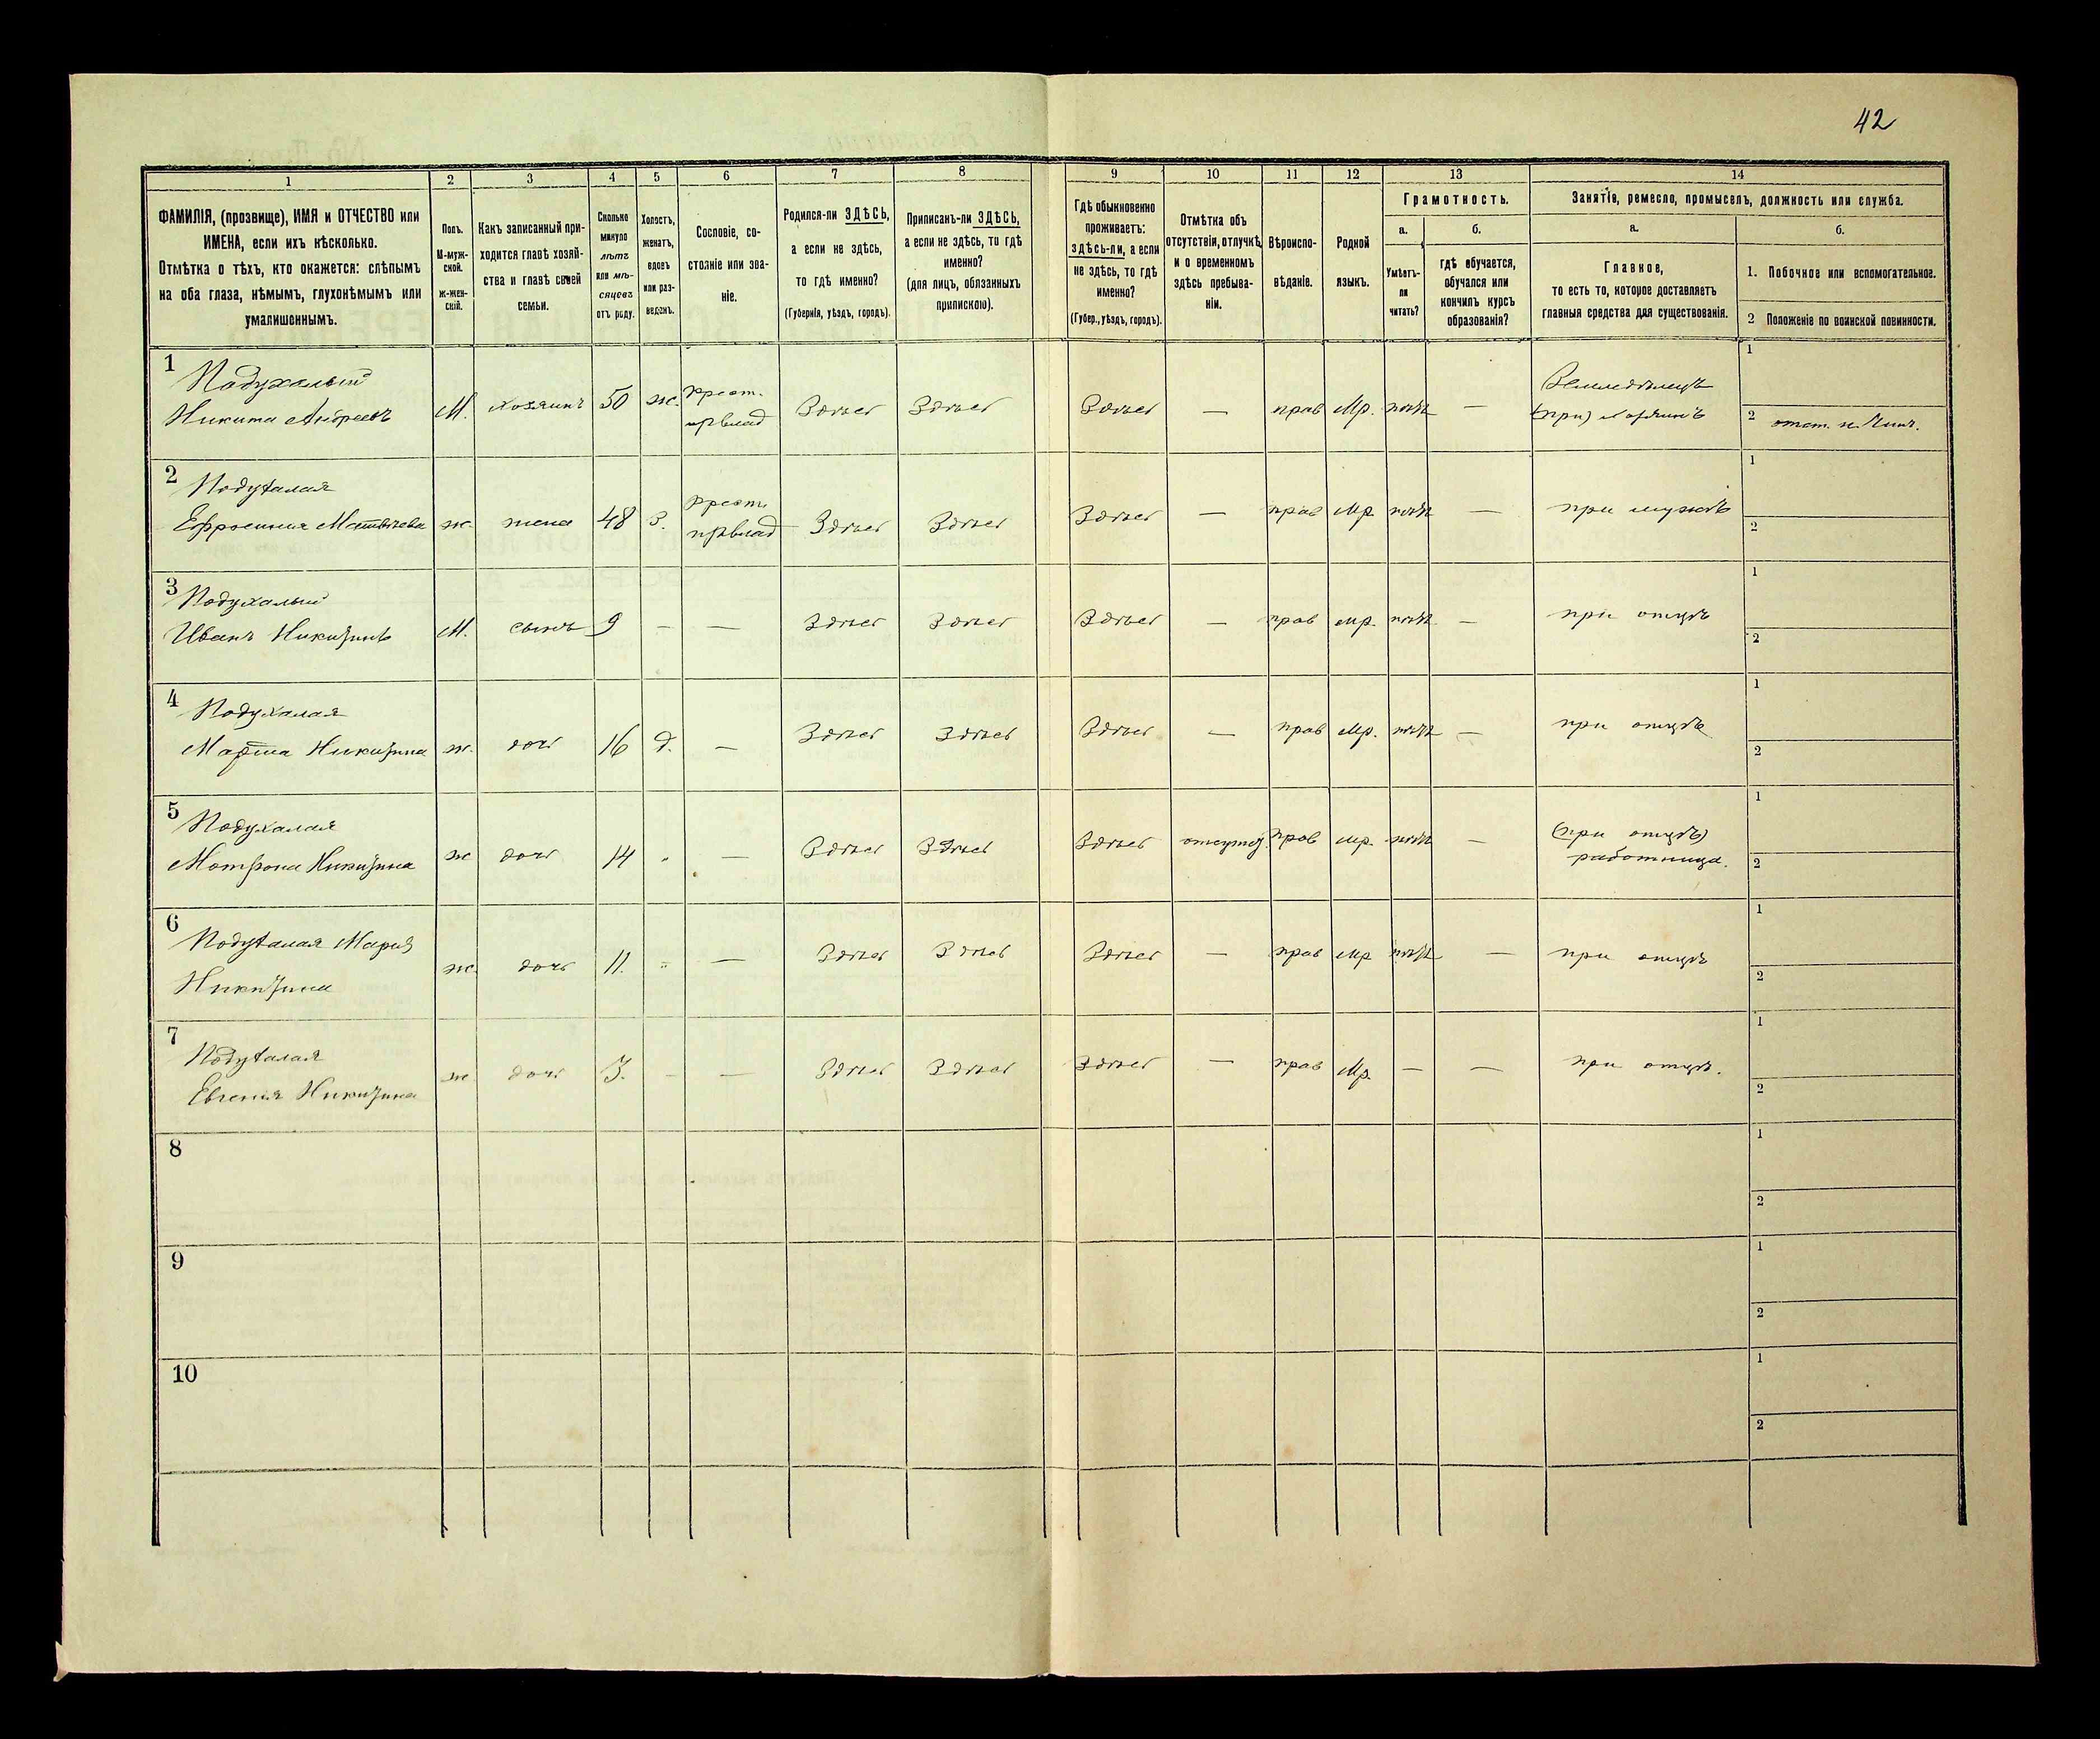 42
1 2 3 4 5 6 7 8 9 10 11 12 13 14
ФАМИЛІЯ, (прозвище), ИМЯ и ОТЧЕСТВО или
ИМЕНА, если ихъ нѣсколько.
Отмѣтка о тѣхъ, кто окажется: слѣпымъ
на оба глаза, нѣмымъ, глухонѣмымъ или
умалишоннымъ.
Полъ.
М-муж-
ской.
ж-жен-
скій.
Какъ записанный при-
ходится главѣ хозяй-
ства и главѣ своей
семьи.
Сколько
минуло
лѣтъ
или мѣ-
сяцевъ
отъ роду.
Холостъ,
женатъ,
вдовъ
или раз-
веденъ.
Сословіе, со-
стояніе или зва-
ніе.
Родился-ли ЗДѢСЬ,
а если не здѣсь,
то гдѣ именно?
(Губернія, уѣздъ, городъ).
Приписанъ-ли ЗДѢСЬ,
а если не здѣсь, то гдѣ
именно?
(для лицъ, обязанныхъ
припискою).
Гдѣ обыкновенно
проживаетъ:
здѣсь-ли, а если
не здѣсь, то гдѣ
именно?
(Губер., уѣздъ, городъ).
Отмѣтка объ
отсутствіи, отлучкѣ,
и о временномъ
здѣсь пребыва-
ніи.
Вѣроиспо-
вѣданіе.
Родной
языкъ.
Грамотность.
а.
Умѣетъ-
ли
читать?
б.
гдѣ обучается,
обучался или
кончилъ курсъ
образованія?
Занятіе, ремесло, промыселъ, должность или служба.
а.
Главное,
то есть то, которое доставляетъ
главныя средства для существованія.
б.
1. Побочное или вспомогательное.
2 Положеніе по воинской повинности.
1 Подухалый
Никита Андреевъ М. хозяинъ 50 ж. крест. Здѣсь Здѣсь Здѣсь — прав Мр. нѣтъ — Земледѣлецъ
1
2
2 Подухалая
Ефросинія Матвѣева ж. жена 48 з. крест. Здѣсь Здѣсь Здѣсь — прав Мр. нѣтъ — при мужѣ
1
2
3 Подухалый
Иванъ Никитинъ М. сынъ 9 — — Здѣсь Здѣсь Здѣсь — прав мр. нѣтъ — при отцѣ
1
2
4 Подухалая
Марѳа Никитина ж. дочь 16 д. — Здѣсь Здѣсь Здѣсь — прав Мр. нѣтъ — при отцѣ
1
2
5 Подухалая
Мотрона Никитина ж дочь 14 „ — Здѣсь Здѣсь Здѣсь отсутст. прав мр. нѣтъ — (при отцѣ)
работница.
1
2
6 Подухалая Марія
Никитина ж. дочь 11. „ — Здѣсь Здѣсь Здѣсь — прав Мр нѣтъ — при отцѣ
1
2
7 Подухалая
Евгенія Никитина ж дочь 3. — — Здѣсь Здѣсь Здѣсь — прав Мр. — — при отцѣ.
1
2
8
1
2
9
1
2
10
1
2